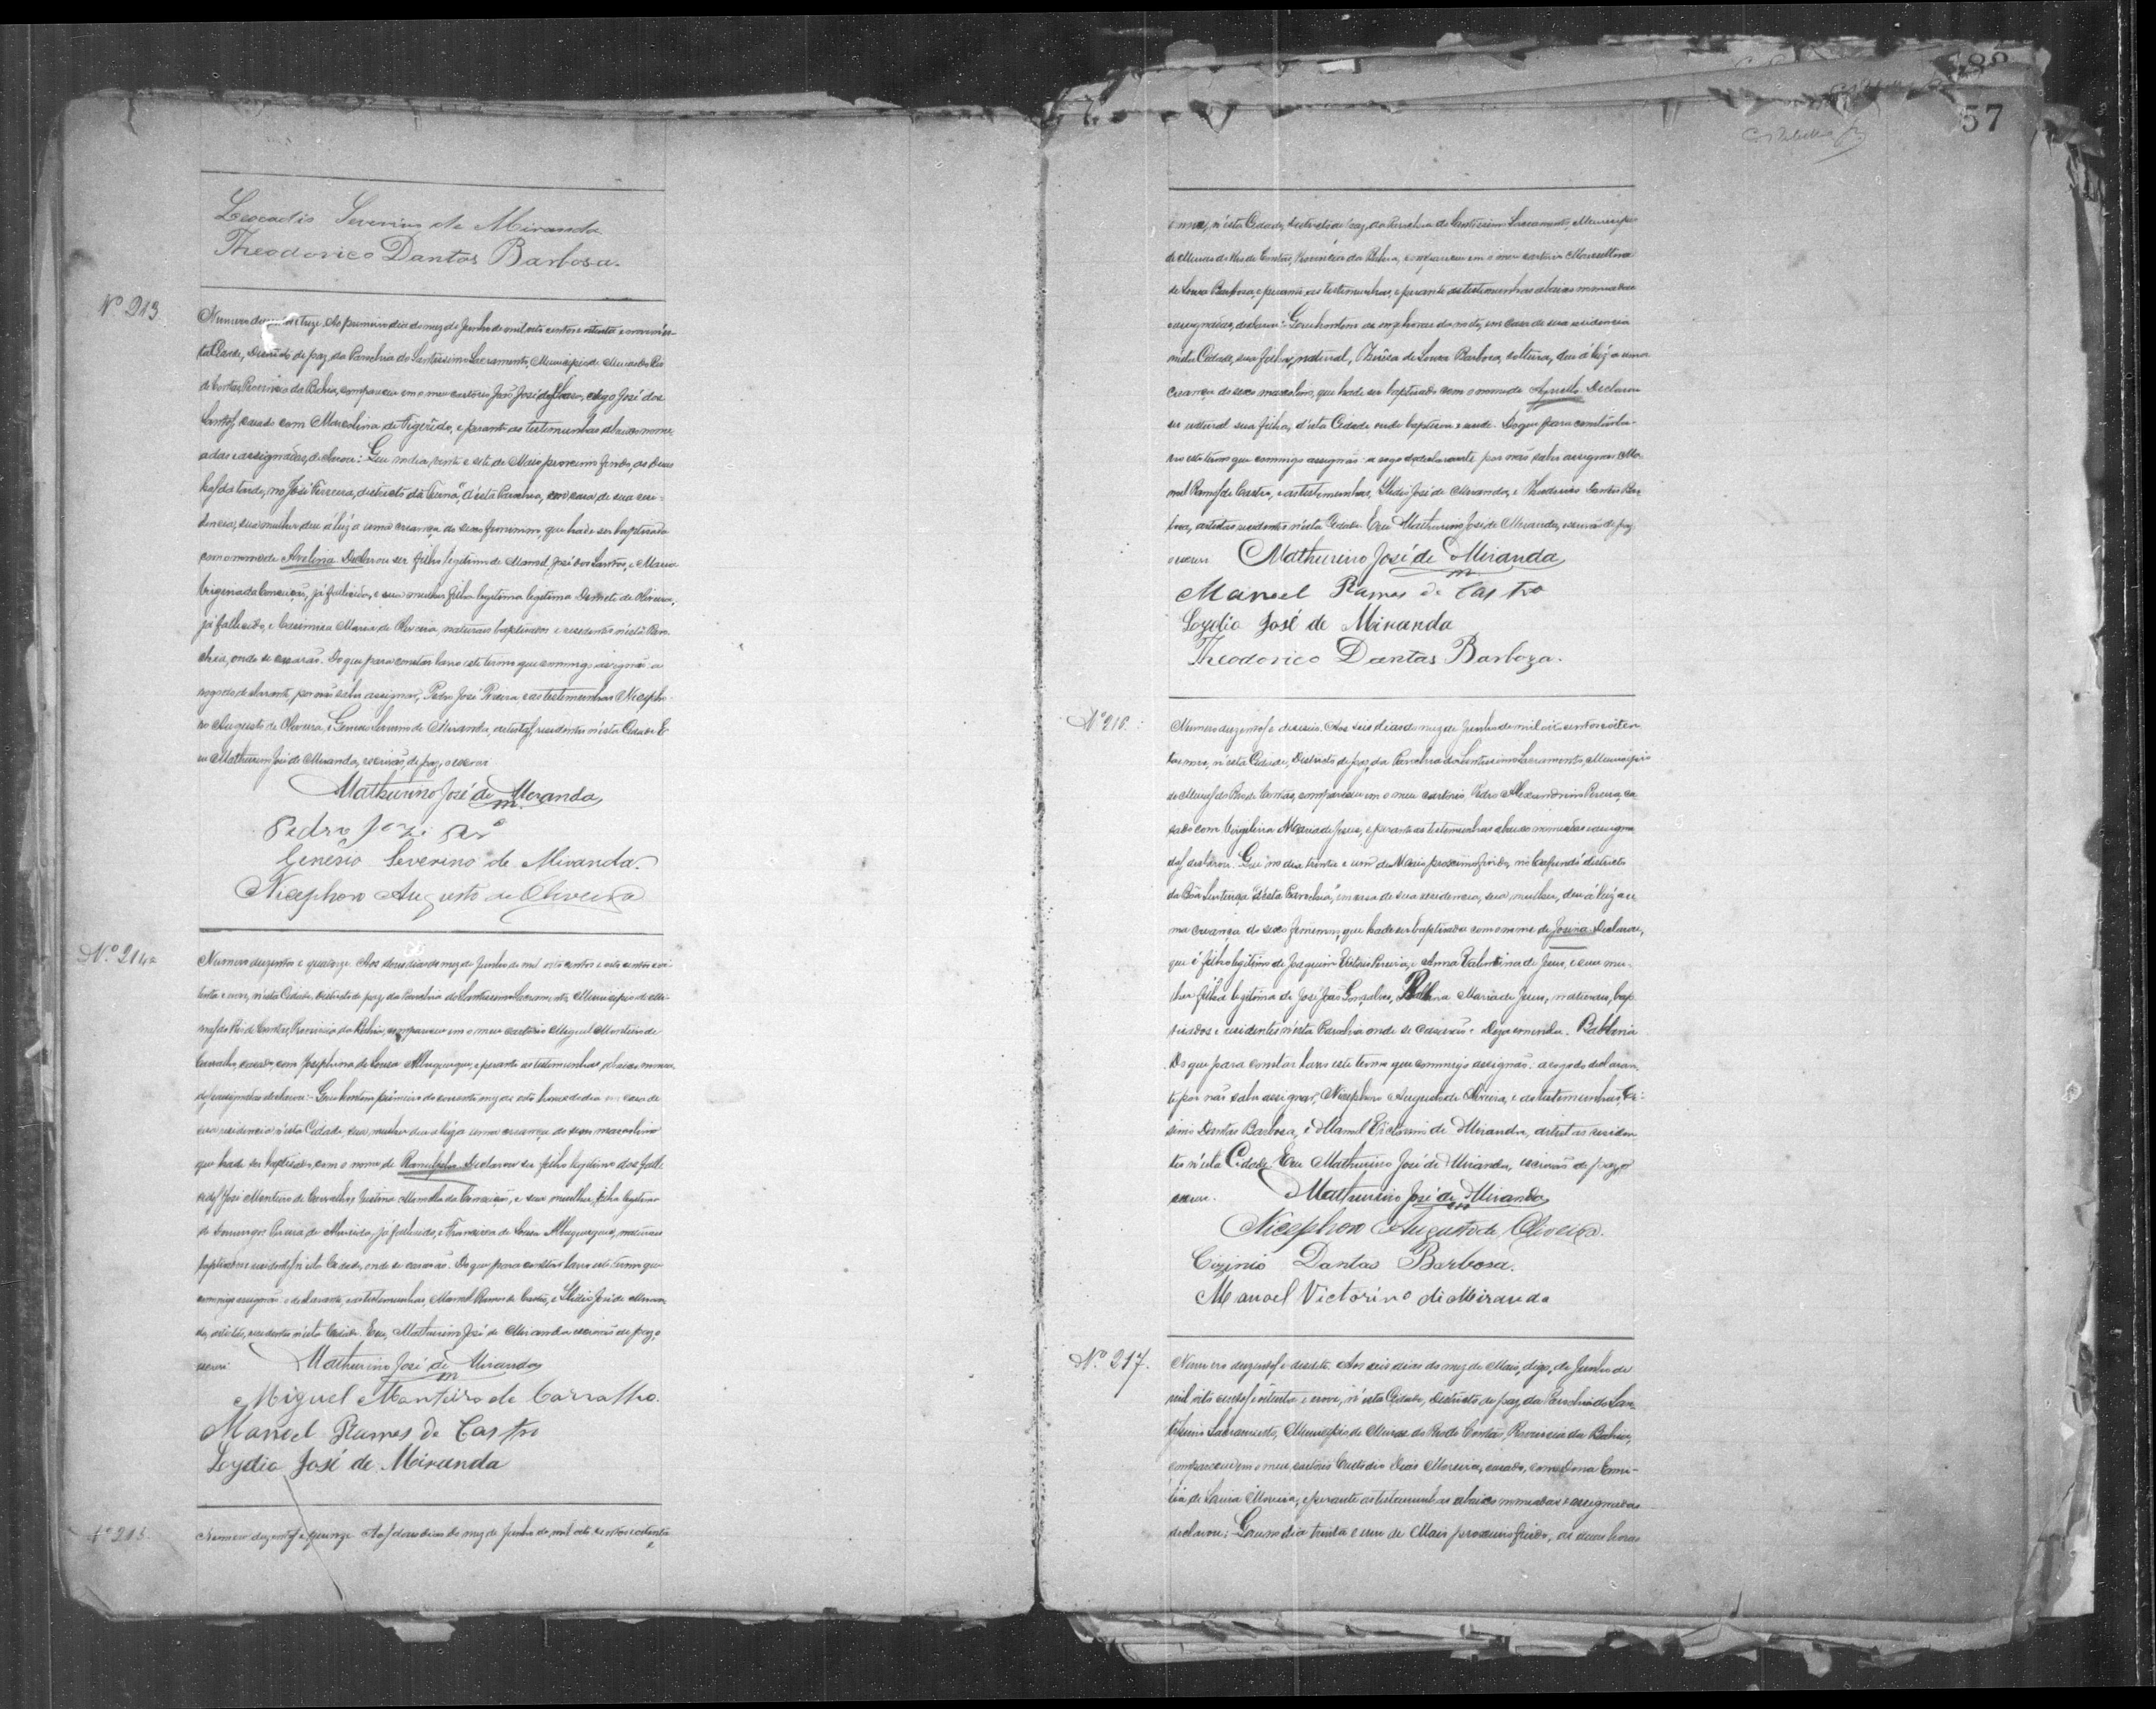 Leocadio Severino de Miranda
Theodorico Dantas Barbosa.
Nº 213
Numero duzentos e treze. Ao primeiro dia do mez de Junho de mil oito centos e oitenta e nove n'es-
ta Cidade, Districto de paz da Parochia do Santissimo Sacramento, Municipio de Minas do Rio
de Contas, Provincia da Bahia, compareceu em o meu cartorio João José de digo José dos
Santos, casado com Marcolina de Figerêdo, e perante as testemunhas abaixo nome-
adas e assignadas, declarou: Que no dia vinte e sete de Maio proximo findo, as duas
horas da tarde, no José Ferreira, districto da d'esta Parochia, em casa de sua resi-
dencia, sua mulher deu á luz a uma creança do sexo feminino, que hade ser baptisada
com o nome de Avelina. Declarou ser filho legitimo de Manoel José dos Santos, e Maria
da Conceição, já fallecidos, e sua mulher filha legitima legitima de Oliveira,
já fallecido, e Maria de Oliveira, naturaes baptisados e residentes n'esta Paro-
chia, onde se casarão. Do que para constar lavro este termo que comigo assignão a
rogo do declarante por não saber assignar, Pedro José Pereira e as testemunhas Nicepho-
ro Augusto de Oliveira, e Genesio Severino de Miranda, artistas, residentes n'esta Cidade. E
eu Mathurino José de Miranda, escrivão de paz, o escrevi
Mathurino José de Miranda
Pedro Joze Per.ª
Genesio Severino de Miranda.
Nicephoro Augusto de Oliveira
Nº. 214
Numero duzentos e quatorze. Aos dous dias do mez de Junho de mil oito centos e oito centos e oi-
tenta e nove, n'esta Cidade, Districto de paz da Parochia do Santissimo Sacramento, Municipio de Mi-
nas do Rio de Contas, Provincia da Bahia, compareceu em o meu cartorio Miguel Monteiro de
Carvalho, casado com Josephina de Souza Albuquerque, e perante as testemunhas abaixo nomea-
das e assignadas declarou: Que hontem primeiro do corrente mez as oito horas do dia em casa de
sua residencia n'esta Cidade, sua mulher deu a luz a uma creança do sexo mascolino
que hade ser baptisado com o nome de Declarou ser filho legitimo dos falle-
cidos José Monteiro de Carvalho, Justina da Conceição, e sua mulher filha legitima
de Domingos Pereira de Almeida, já fallecido, e Francisca de Souza Albuquerque, naturaes
baptisados e residentes n'esta Cidade, onde se casarão. Do que para constar lavro este termo que
commigo assignão o declarante, e as testemunhas, Manoel Ramos de Castro, e Lydio José de Miran-
da, artistas, residentes n'esta Cidade. Eu, Mathurino José de Miranda escrivão de paz, o
escrevi Mathurino José de Miranda
Miguel Monteiro de Carvalho.
Manoel Ramos de Castro
Lydio José de Miranda
Nº 215
Numero duzentos e quinze. Aos dous dias do mez de Junho de mil oito centos e oitenta
e
57
e nove, n'esta Cidade, Districto de paz, da Parochia do Santissimo Sacramento, Municipio
de Minas do Rio de Contas, Provincia da Bahia, compareceu em o meu cartorio
de Souza Barbosa, e perante as testemunhas, e perante as testemunhas abaixo nomeadas
e assignadas, declarou: Que hontem as onze horas da noite, em casa de sua residencia
nesta Cidade, sua filha natural, de Souza Barbosa, solteira, deu á luz a uma
creança do sexo mascolino, que hade ser baptisado com o nome de Declarou
ser natural sua filha, d'esta Cidade onde baptisou e reside. Do que para constar la-
vro este termo que commigo assignão a rogo da declarante por não saber assignar Ma-
noel Ramos de Castro, e as testemunhas, Lydio José de Miranda, e Theodorico Dantas Bar-
boza, artistas residentes n'esta Cidade. Eu Mathurino José de Miranda, escrivão de paz,
o escrevi Mathurino José de Miranda
Manoel Ramos de Castro
Lydio José de Miranda
Theodorico Dantas Barboza.
Nº 216.
Numero duzentos e deseseis. Aos seis dias do mez de Junho de mil oito centos e oiten-
ta e nove, n'esta Cidade, Districto de paz, da Parochia do Santissimo Sacramento, Municipio
de Minas do Rio de Contas, compareceu em o meu cartorio Pedro Alexandrino Pereira, ca-
sado com Maria de Jesus, e perante as testemunhas abaixo nomeadas e assigna-
das declarou: Que no dia trinta e um de Maio proximo findo, no districto
da Bôa Sentença d'esta Parochia, em casa de sua residencia, sua mulher, deu á luz a u-
ma creança do sexo femenino, que hade ser baptisada com o nome de Josina. Declarou,
que é filho legitimo de Joaquim Pereira, e Anna Valentina de Jesus, e sua mu-
lher filha legitima de José João Gonçalves, Maria de Jesus, naturaes, bap-
tisados e residentes n'esta Parochia onde se casarão. Digo
Do que para constar lavro este termo que commigo assignão a rogo do declaran-
te por não saber assignar, Nicephoro Augusto de Oliveira, e as testemunhas, Ci-
sinio Dantas Barbosa, e Manoel Victorino de Miranda, artistas residen-
tes n'esta Cidade. Eu Mathurino José de Miranda, escrivão de paz, o
escrevi. Mathurino José de Miranda
Nicephoro Augusto de Oliveira.
Cizinio Dantas Barbosa.
Manoel Victorino de Miranda
Nº. 217.
Numero duzentos e desesete. Aos seis dias do mez de Maio, digo, de Junho de
mil oito centos e oitenta e nove, n'esta Cidade, Districto de paz, da Parochia do San-
tissimo Sacramento, Municipio de Minas do Rio de Contas, Provincia da Bahia,
compareceu em o meu cartorio Custodio Dias Moreira, casado, com Dona Emi-
lia de Moreira, e perante as testemunhas abaixo nomeadas e assignadas
declarou: Que no dia trinta e um de Maio proximo findo, as horas